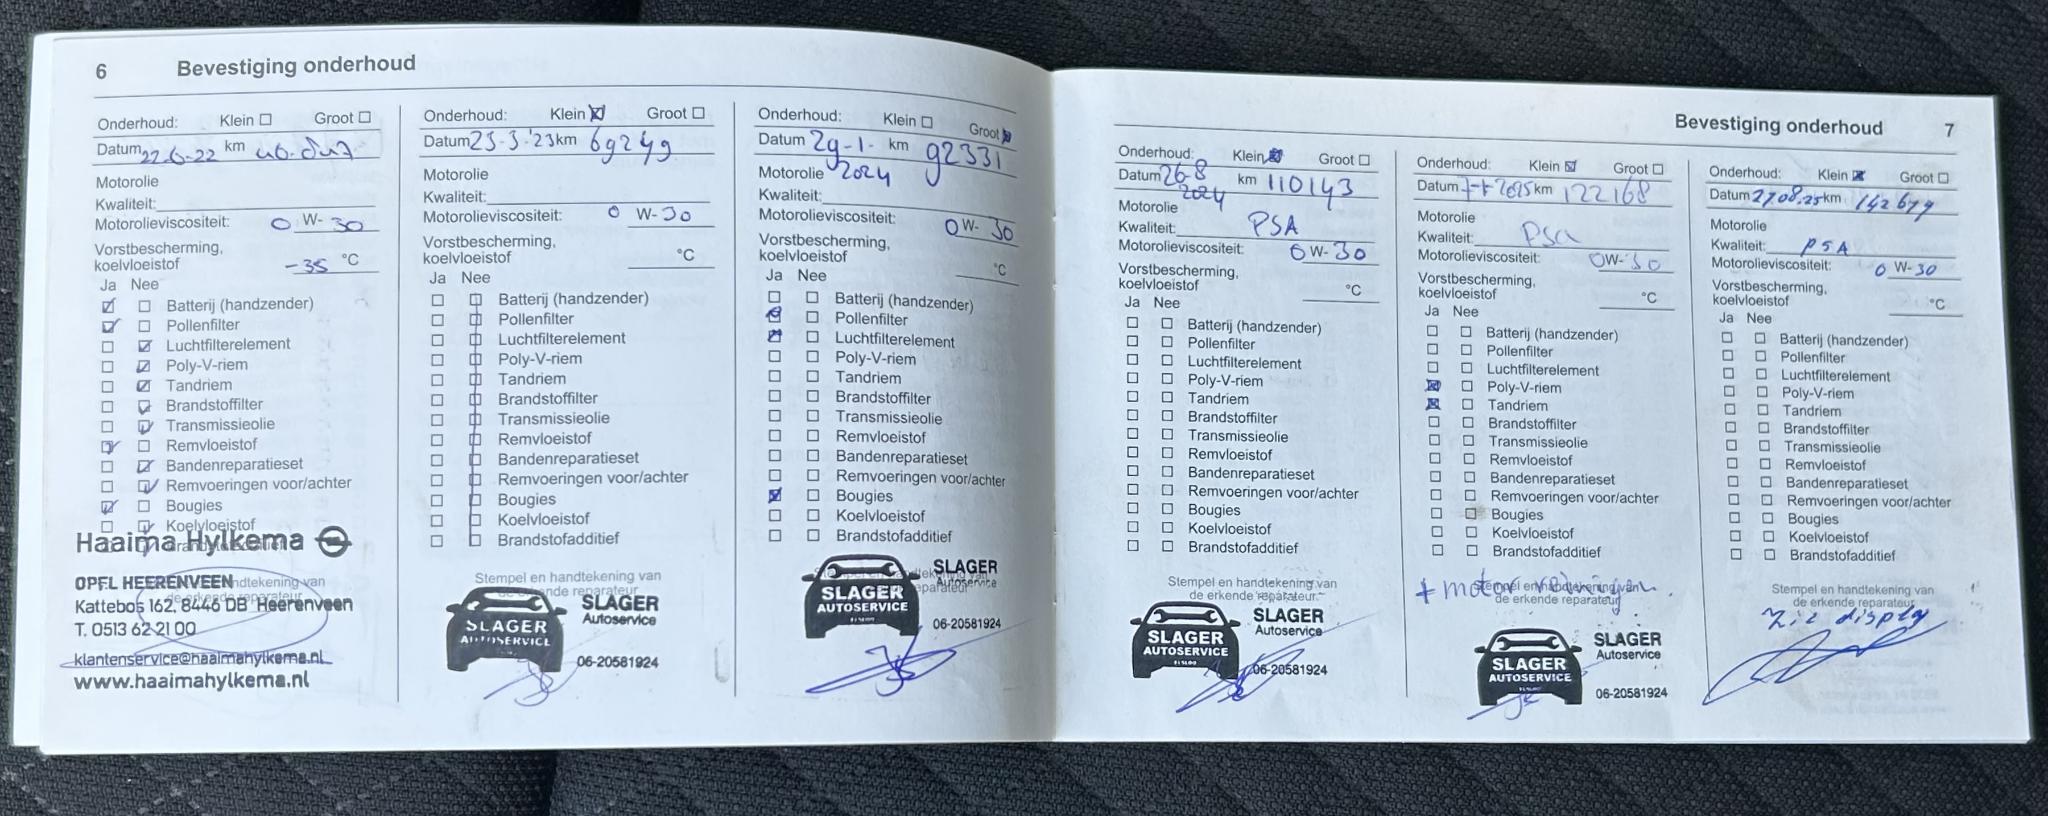 6 Bevestiging onderhoud
Onderhoud: Klein Groot
Datum 22-6-22 km
Motorolie
Kwaliteit:
Motorolieviscositeit: 0 W- 30
Vorstbescherming,
koelvloeistof -35 °C
Ja Nee
Batterij (handzender)
Pollenfilter
Luchtfilterelement
Poly-V-riem
Tandriem
Brandstoffilter
Transmissieolie
Remvloeistof
Bandenreparatieset
Remvoeringen voor/achter
Bougies
Koelvloeistof
Haaima Hylkema
OPEL HEERENVEEN
Kattebos 162, 8446 DB Heerenveen
T. 0513 62 21 00
klantenservice@haaimahylkema.nl
www.haaimahylkema.nl
Onderhoud: Klein Groot
Datum 23-3-'23 km 69249
Motorolie
Kwaliteit:
Motorolieviscositeit: 0 W- 30
Vorstbescherming,
koelvloeistof °C
Ja Nee
Batterij (handzender)
Pollenfilter
Luchtfilterelement
Poly-V-riem
Tandriem
Brandstoffilter
Transmissieolie
Remvloeistof
Bandenreparatieset
Remvoeringen voor/achter
Bougies
Koelvloeistof
Brandstofadditief
Stempel en handtekening van
de erkende reparateur
SLAGER
AUTOSERVICE
SLAGER
Autoservice
06-20581924
Onderhoud: Klein Groot
Datum 29-1- km 92331
Motorolie 2024
Kwaliteit:
Motorolieviscositeit: 0 W- 30
Vorstbescherming,
koelvloeistof °C
Ja Nee
Batterij (handzender)
Pollenfilter
Luchtfilterelement
Poly-V-riem
Tandriem
Brandstoffilter
Transmissieolie
Remvloeistof
Bandenreparatieset
Remvoeringen voor/achter
Bougies
Koelvloeistof
Brandstofadditief
SLAGER
AUTOSERVICE
SLAGER
Autoservice
06-20581924
Bevestiging onderhoud 7
Onderhoud: Klein Groot
Datum 26-8 km 110143
2024
Motorolie
Kwaliteit: PSA
Motorolieviscositeit: 0 W- 30
Vorstbescherming,
koelvloeistof °C
Ja Nee
Batterij (handzender)
Pollenfilter
Luchtfilterelement
Poly-V-riem
Tandriem
Brandstoffilter
Transmissieolie
Remvloeistof
Bandenreparatieset
Remvoeringen voor/achter
Bougies
Koelvloeistof
Brandstofadditief
Stempel en handtekening van
de erkende reparateur
SLAGER
AUTOSERVICE
SLAGER
Autoservice
06-20581924
Onderhoud: Klein Groot
Datum 2025 km 122168
Motorolie
Kwaliteit: PSA
Motorolieviscositeit: 0 W- 30
Vorstbescherming,
koelvloeistof °C
Ja Nee
Batterij (handzender)
Pollenfilter
Luchtfilterelement
Poly-V-riem
Tandriem
Brandstoffilter
Transmissieolie
Remvloeistof
Bandenreparatieset
Remvoeringen voor/achter
Bougies
Koelvloeistof
Brandstofadditief
+ motor
Stempel en handtekening van
de erkende reparateur
SLAGER
AUTOSERVICE
SLAGER
Autoservice
06-20581924
Onderhoud: Klein Groot
Datum 27.08.25 km 142679
Motorolie
Kwaliteit: PSA
Motorolieviscositeit: 0 W- 30
Vorstbescherming,
koelvloeistof °C
Ja Nee
Batterij (handzender)
Pollenfilter
Luchtfilterelement
Poly-V-riem
Tandriem
Brandstoffilter
Transmissieolie
Remvloeistof
Bandenreparatieset
Remvoeringen voor/achter
Bougies
Koelvloeistof
Brandstofadditief
Stempel en handtekening van
de erkende reparateur
Zie display